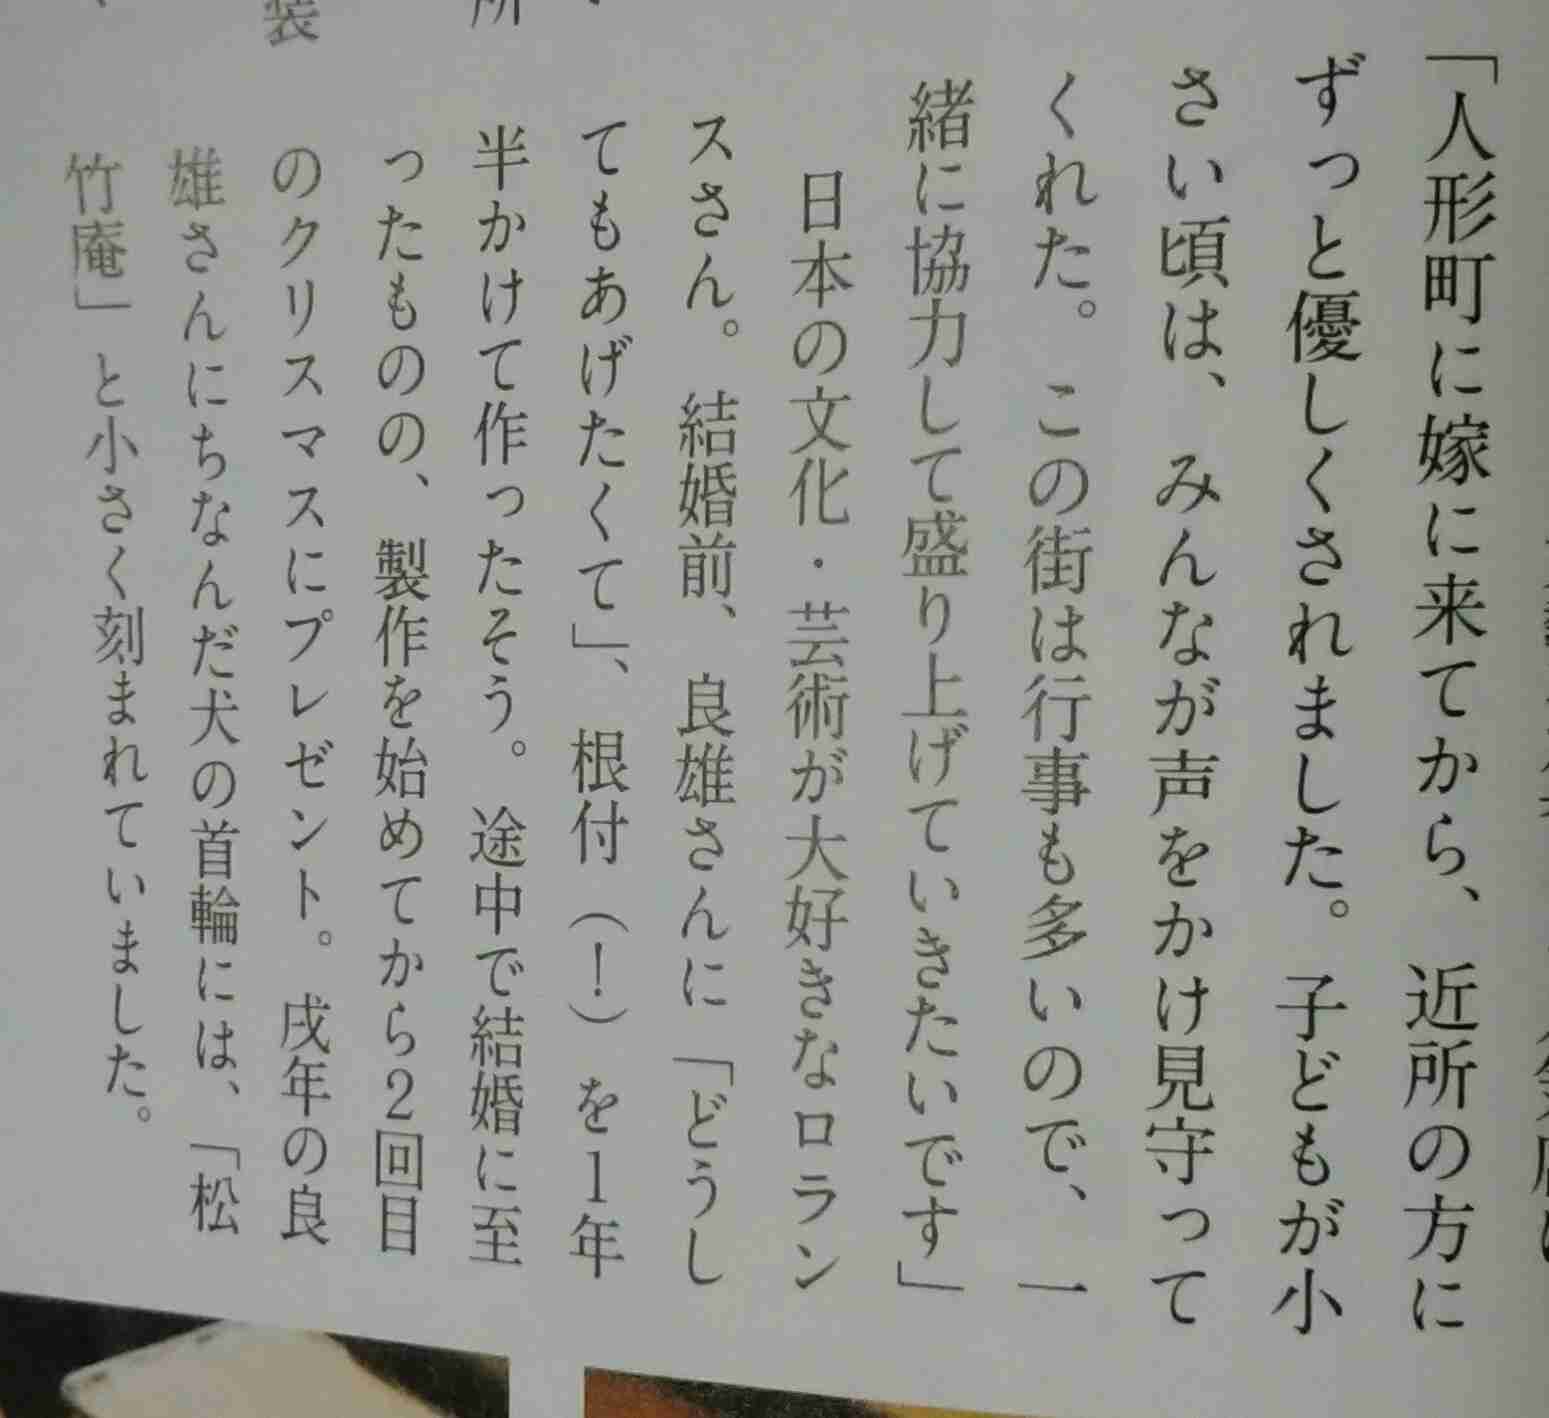 「人形町に嫁に来てから、近所の方に
ずっと優しくされました。子どもが小
さい頃は、みんなが声をかけ見守って
くれた。この街は行事も多いので、一
緒に協力して盛り上げていきたいです」
日本の文化・芸術が大好きなロラン
スさん。結婚前、良雄さんに「どうし
てもあげたくて」、根付（！）を1年
半かけて作ったそう。途中で結婚に至
ったものの、製作を始めてから2回目
のクリスマスにプレゼント。戌年の良
雄さんにちなんだ犬の首輪には、「松
竹庵」と小さく刻まれていました。
所
装